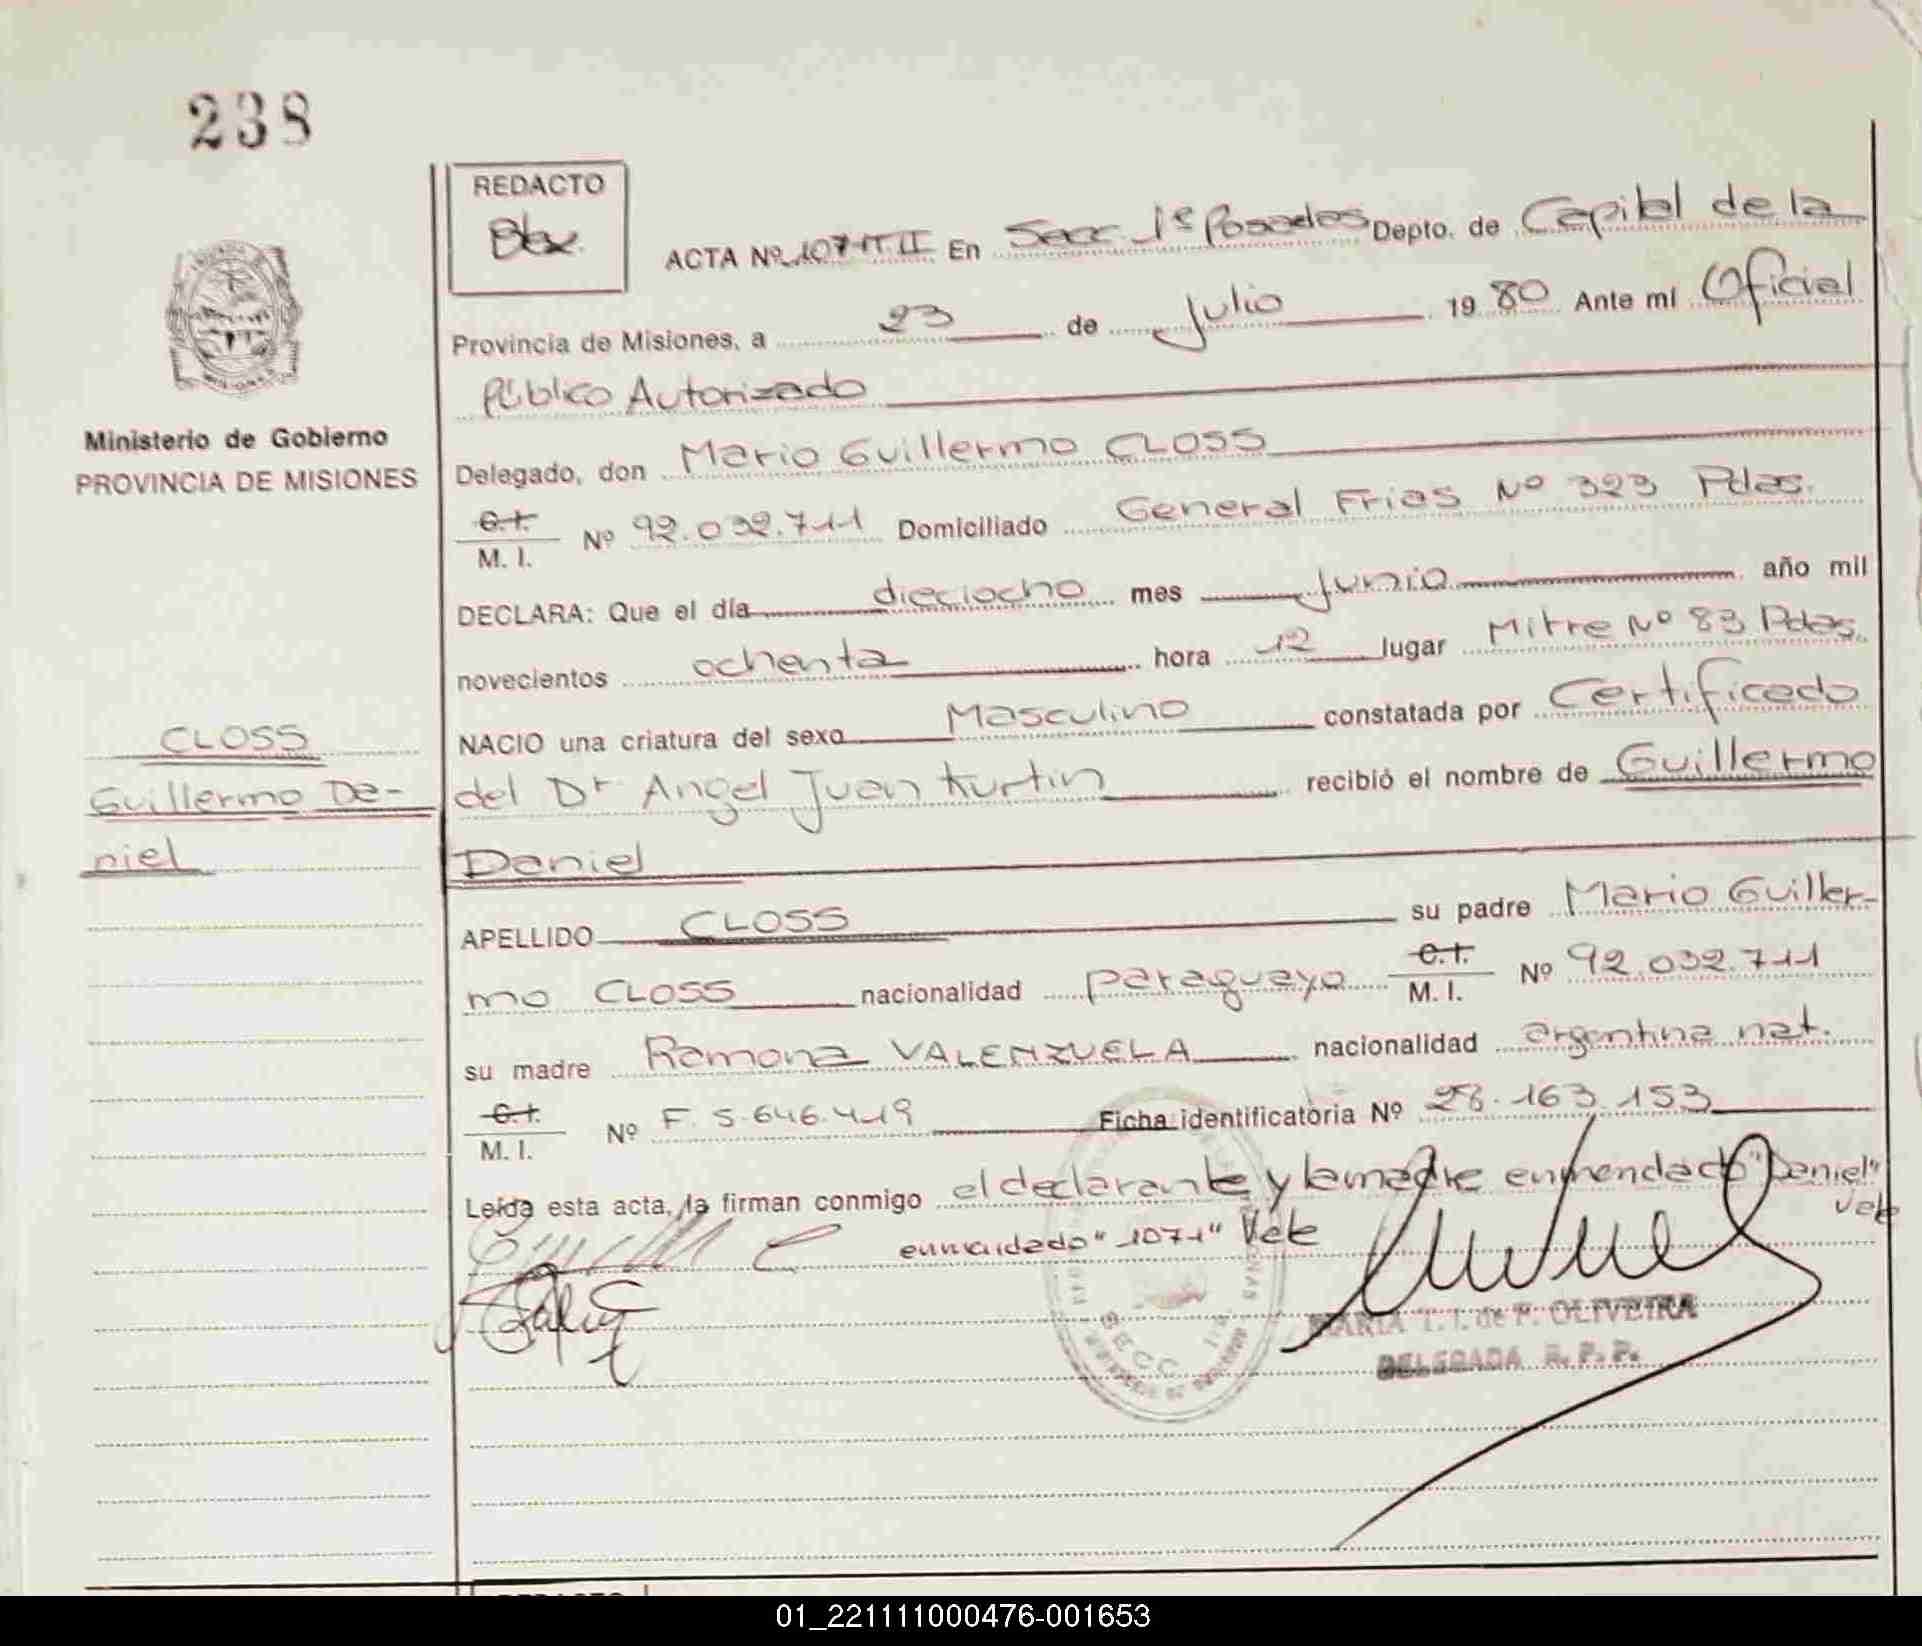 238
REDACTO
ACTA Nº 1071 T. II En Secc. 1º Posadas Depto. de Capital de la
Provincia de Misiones, a 23 de Julio 1980 Ante mí Oficial
Público Autorizado
Ministerio de Gobierno
PROVINCIA DE MISIONES
Delegado, don Mario Guillermo CLOSS
C.I.
M. I. Nº 92.032.711 Domiciliado General Frias Nº 323 Pdas.
DECLARA: Que el día dieciocho mes Junio año mil
novecientos ochenta hora 12 lugar Mitre Nº 83 Pdas.
CLOSS
Guillermo Da-
niel
NACIO una criatura del sexo Masculino constatada por Certificado
del Dr Angel Juan Kurtin recibió el nombre de Guillermo
Daniel
APELLIDO CLOSS su padre Mario Guiller-
mo CLOSS nacionalidad paraguaya C.I. M. I. Nº 92.032.711
su madre Ramona VALENZUELA nacionalidad argentina nat.
C.I.
M. I. Nº F. 5.646.419 Ficha identificatoria Nº 28.163.153
Leída esta acta, la firman conmigo el declarante y la madre enmendado "Daniel"
Vale
enmendado "1071" Vale
MARIA T. I. de P. OLIVEIRA
DELEGADA R. P. P.
01_221111000476-001653